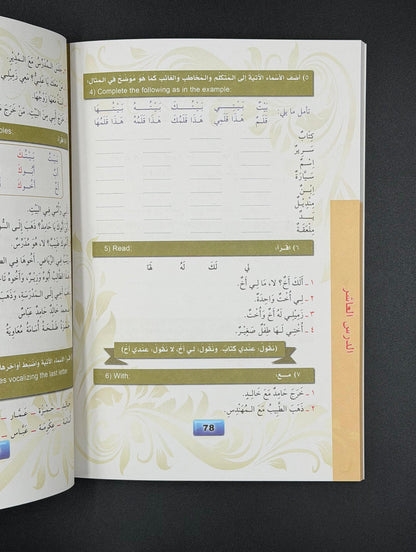 ٥) أضف الأسماء الآتية إلى المتكلم والمخاطب والغائب كما هو موضح في المثال.
4) Complete the following as in the example:
تأمل ما يلي: بَيْتٌ بَيْتِي بَيْتُكَ بَيْتُهُ بَيْتُهَا
قَلَمٌ هَذَا قَلَمِي هَذَا قَلَمُكَ هَذَا قَلَمُهُ هَذَا قَلَمُهَا
كِتَابٌ
سَرِيرٌ
اسْمٌ
سَيَّارَةٌ
ابْنٌ
مِنْدِيلٌ
يَدٌ
مِلْعَقَةٌ
٦) اقرأ:
5) Read:
لِي لَكَ لَهُ لَهَا
١ ـ أَلَكَ أَخٌ؟ لا، مَا لِي أَخٌ.
٢ ـ لِي أُخْتٌ وَاحِدَةٌ.
٣ ـ زَمِيلِي لَهُ أَخٌ وَأُخْتٌ.
٤ ـ أُخْتِي لَهَا طِفْلٌ صَغِيرٌ.
(نقول: عندي كتاب. ونقول: لي أخ، لا نقول: عندي أخ)
٧) مع:
6) With:
١ ـ خَرَجَ حَامِدٌ مَعَ خَالِدٍ.
٢ ـ ذَهَبَ الطَّبِيبُ مَعَ المُهَنْدِسِ.
78
الدرس العاشر
المُدَرِّسِ مَعَ المُدِيرِ.
ples:
بَيْتُكَ
أَبُوكَ
أَخُوكَ
es vocalizing the last letter
حَمْزَةُ ـ عَمَّارٌ
عِكْرِمَةُ ـ عَبَّاسٌ